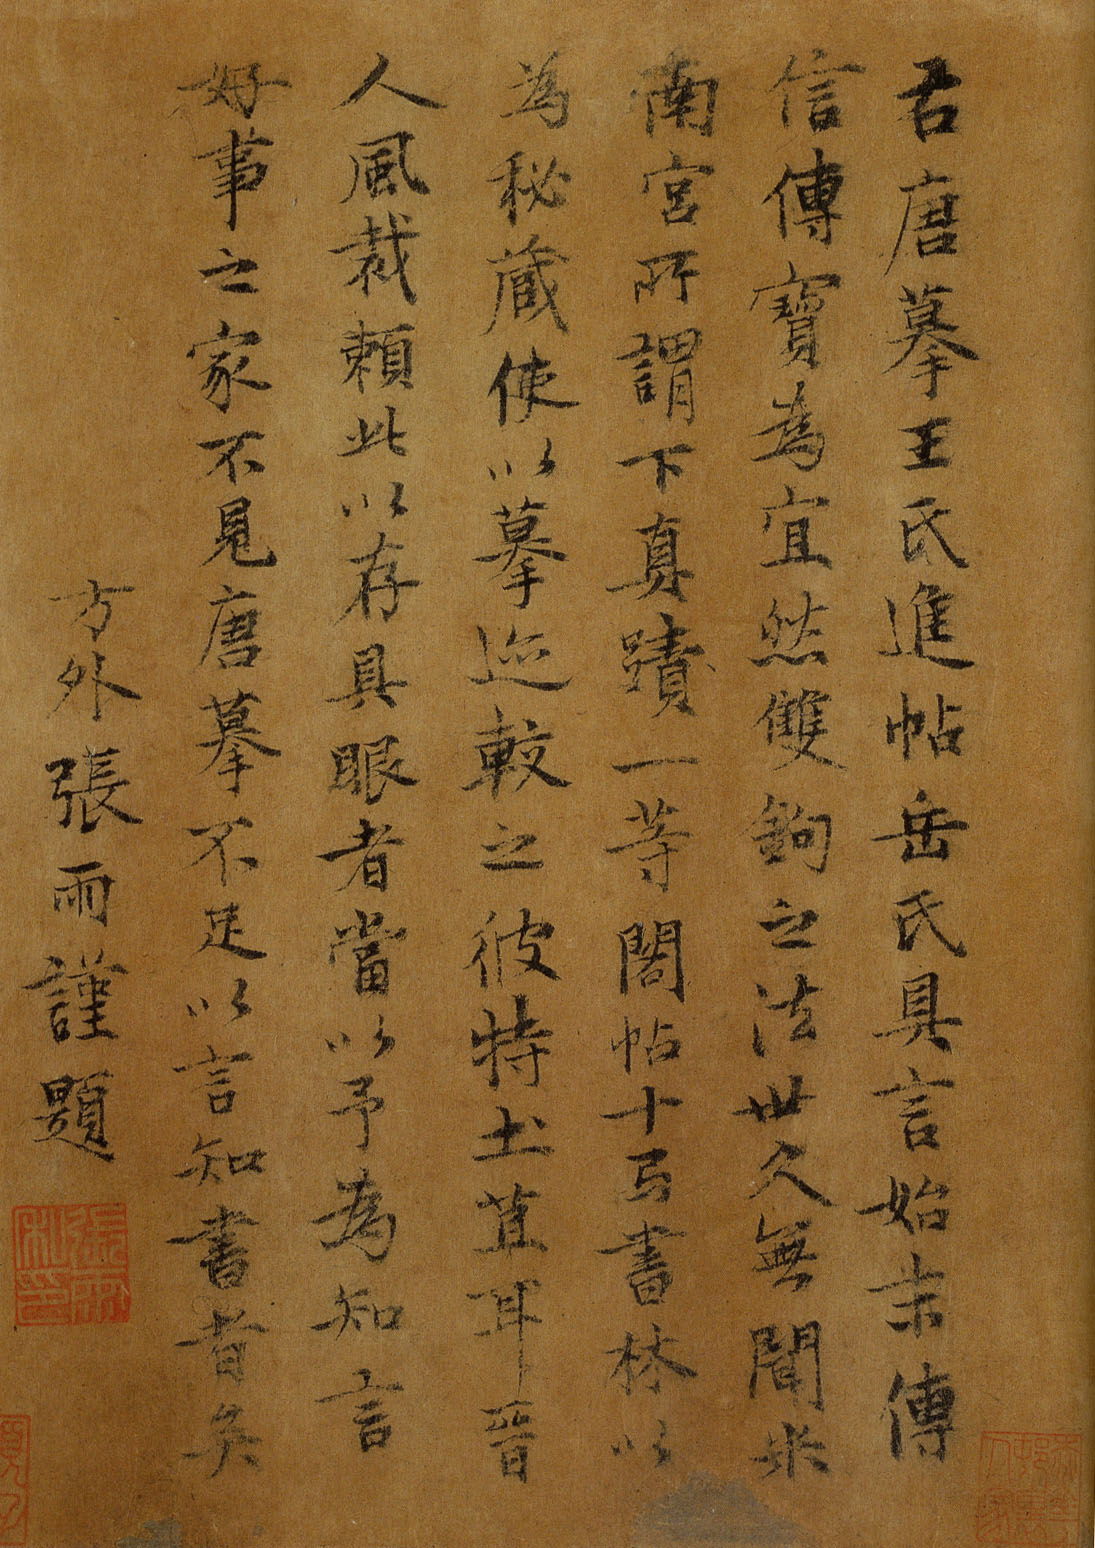 右唐摹王氏進帖岳氏具言始末傳
信傳寶為宜然雙鉤之法世久無聞米
南宮所謂下真蹟一等閣帖十弓書林以
為秘藏使以摹迹較之彼特土苴耳晉
人風裁賴此以存具眼者當以予為知言
好事之家不見唐摹不足以言知書者矣
方外張雨謹題
張雨私印